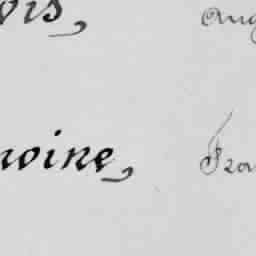 ois, Aug
noine, Fran